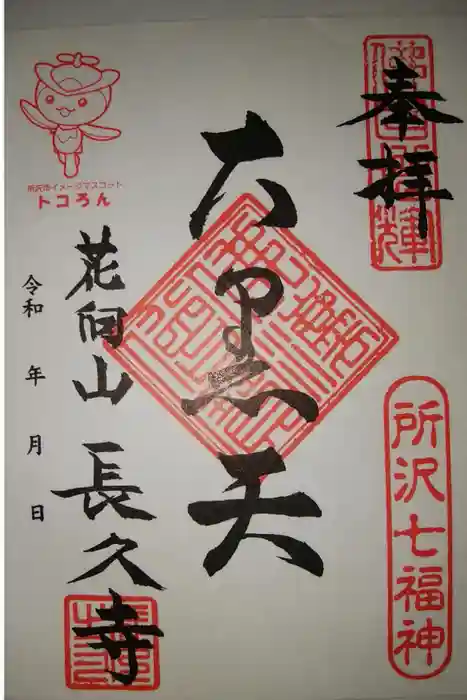 奉拝
所沢七福神
大黒天
所沢市イメージマスコット
トコろん
花向山 長久寺
令和 年 月 日